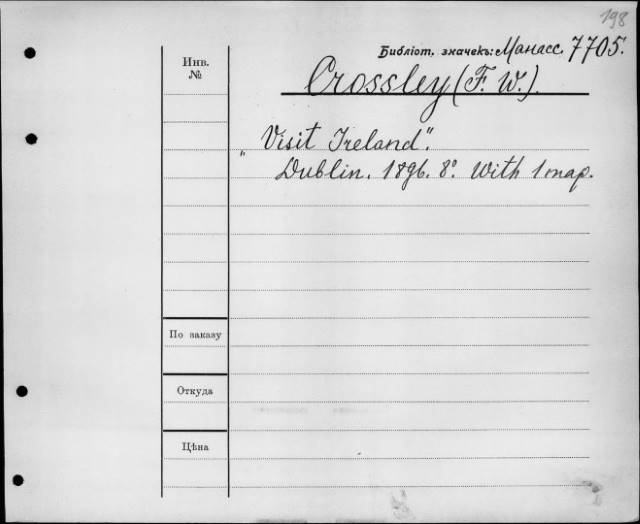 198
Библіот. значекъ: Манасс. 7705.
Инв.
№
Crossley (F. W.).
„Visit Ireland".
Dublin. 1896. 8º. With 1 map.
По заказу
Откуда
Цѣна